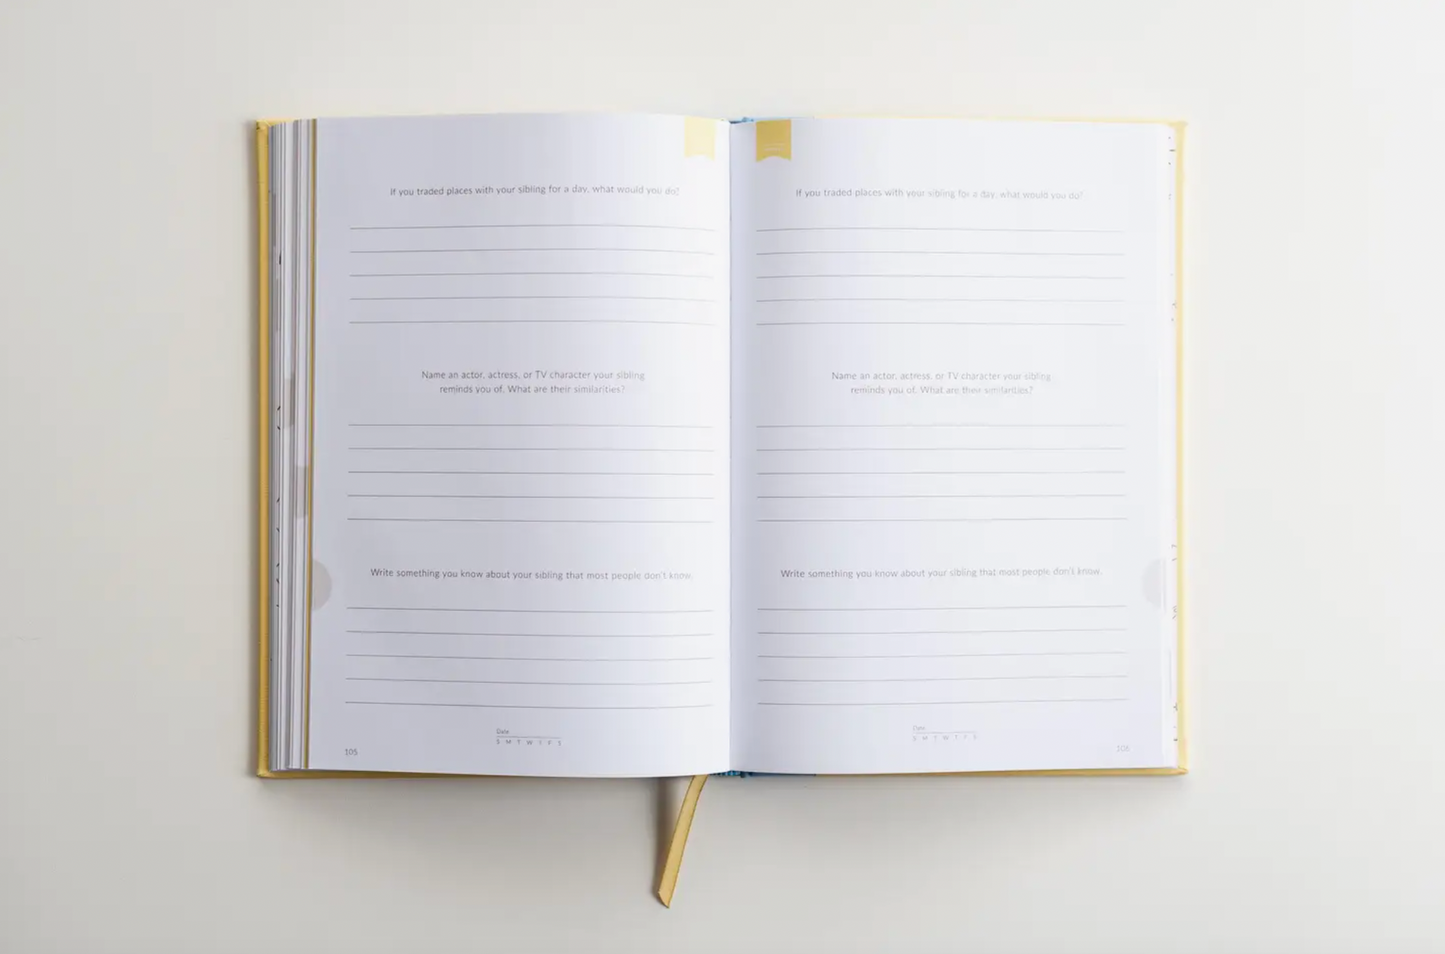 If you traded places with your sibling for a day, what would you do?
Name an actor, actress, or TV character your sibling
reminds you of. What are their similarities?
Write something you know about your sibling that most people don't know.
Date
S M T W T F S
105
If you traded places with your sibling for a day, what would you do?
Name an actor, actress, or TV character your sibling
reminds you of. What are their similarities?
Write something you know about your sibling that most people don't know.
Date
S M T W T F S
106